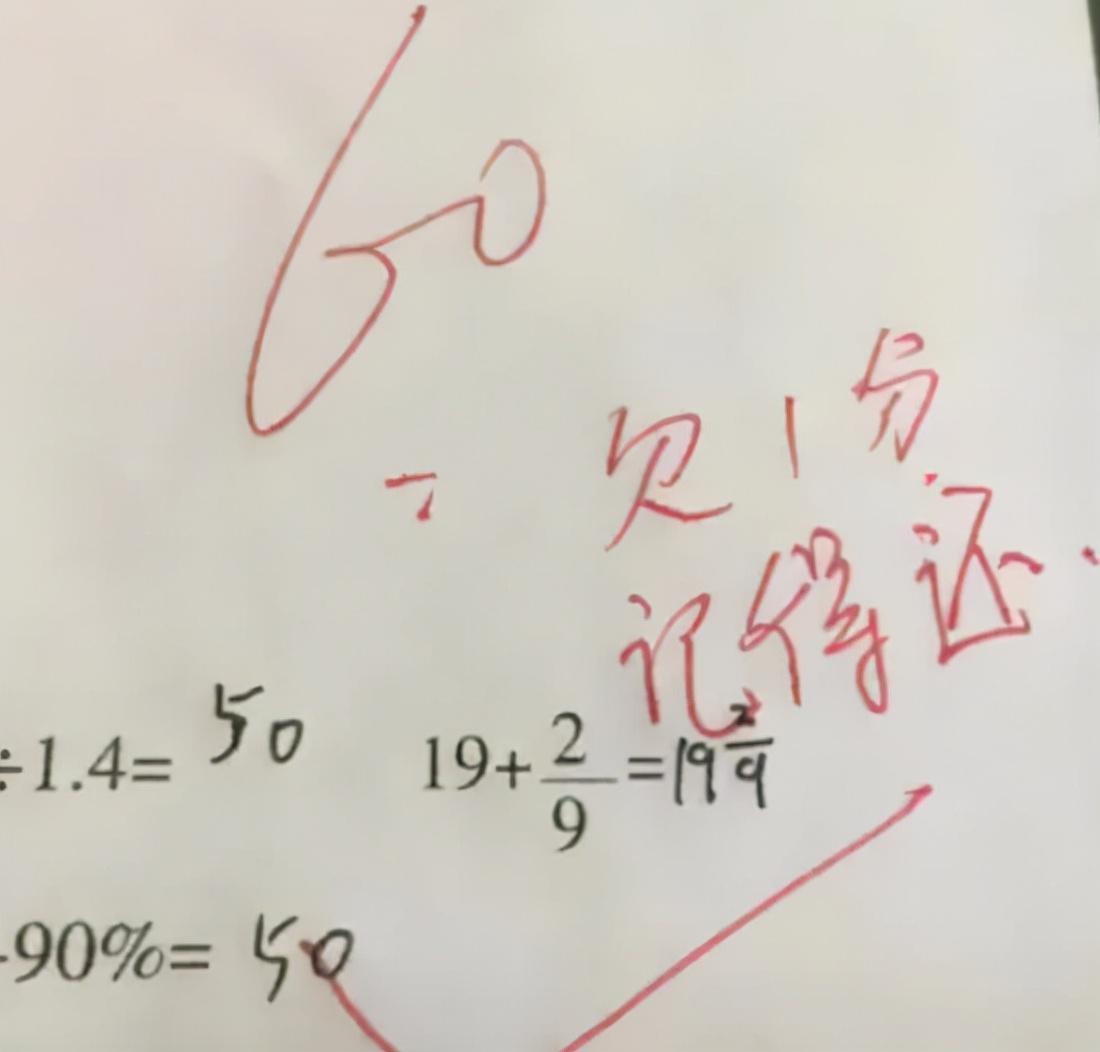 60
欠1分
记得还.
÷1.4= 50 19+2/9=19 2/9
-90%= 50